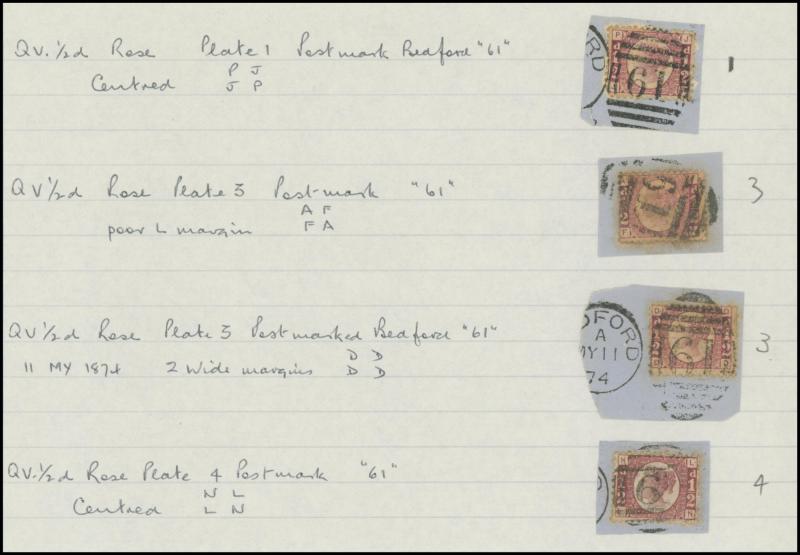 QV. ½d Rose Plate 1 Postmark Bedford "61"
P J
Centred J P
1
QV ½d Rose Plate 3 Post-mark "61"
A F
poor L margin F A
3
QV ½d Rose Plate 3 Postmarked Bedford "61"
D D
11 MY 1874 2 Wide margins D D
3
QV. ½d Rose Plate 4 Postmark "61"
N L
Centred L N
4
ORD
61
61
DFORD
A
MY 11
74
61